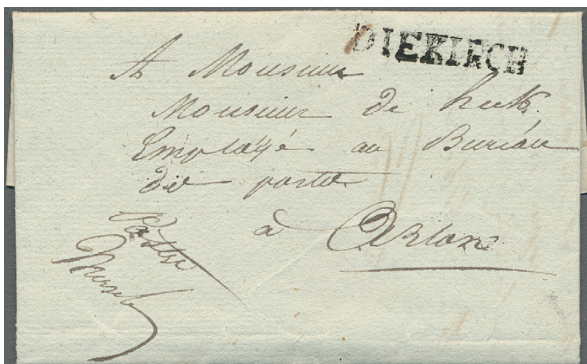 DIEKIRCH
A Monsieur
Monsieur de
Employé au Bureau
de poste
à Arlon